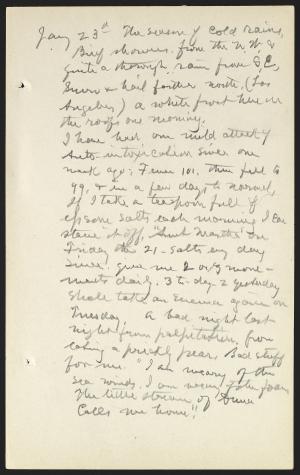 Jany 23rd The season of cold rains,
Big showers from the N.W. &
quite a thorough rain from S.E.
Snow & hail farther north, (Los
Angeles) a white frost here on
the roofs one morning.
I have had one mild attack of
Auto-intoxication since one
week ago; Fever 101, then fell to
99, & in a few days to normal,
If I take a teaspoon full of
epsom salts each morning I can
stave it off. "Aunt Martha" on
Friday the 21 - salts every day
since. give me 2 or 3 move-
ments daily. 3 to-day 2 yesterday
Shall take an enema again on
Tuesday. A bad night last
night from palpitation, from
eating a prickly pear. Bad stuff
for me. "I am weary of the
sea winds, I am weary John
The little stream of
Calls me home."